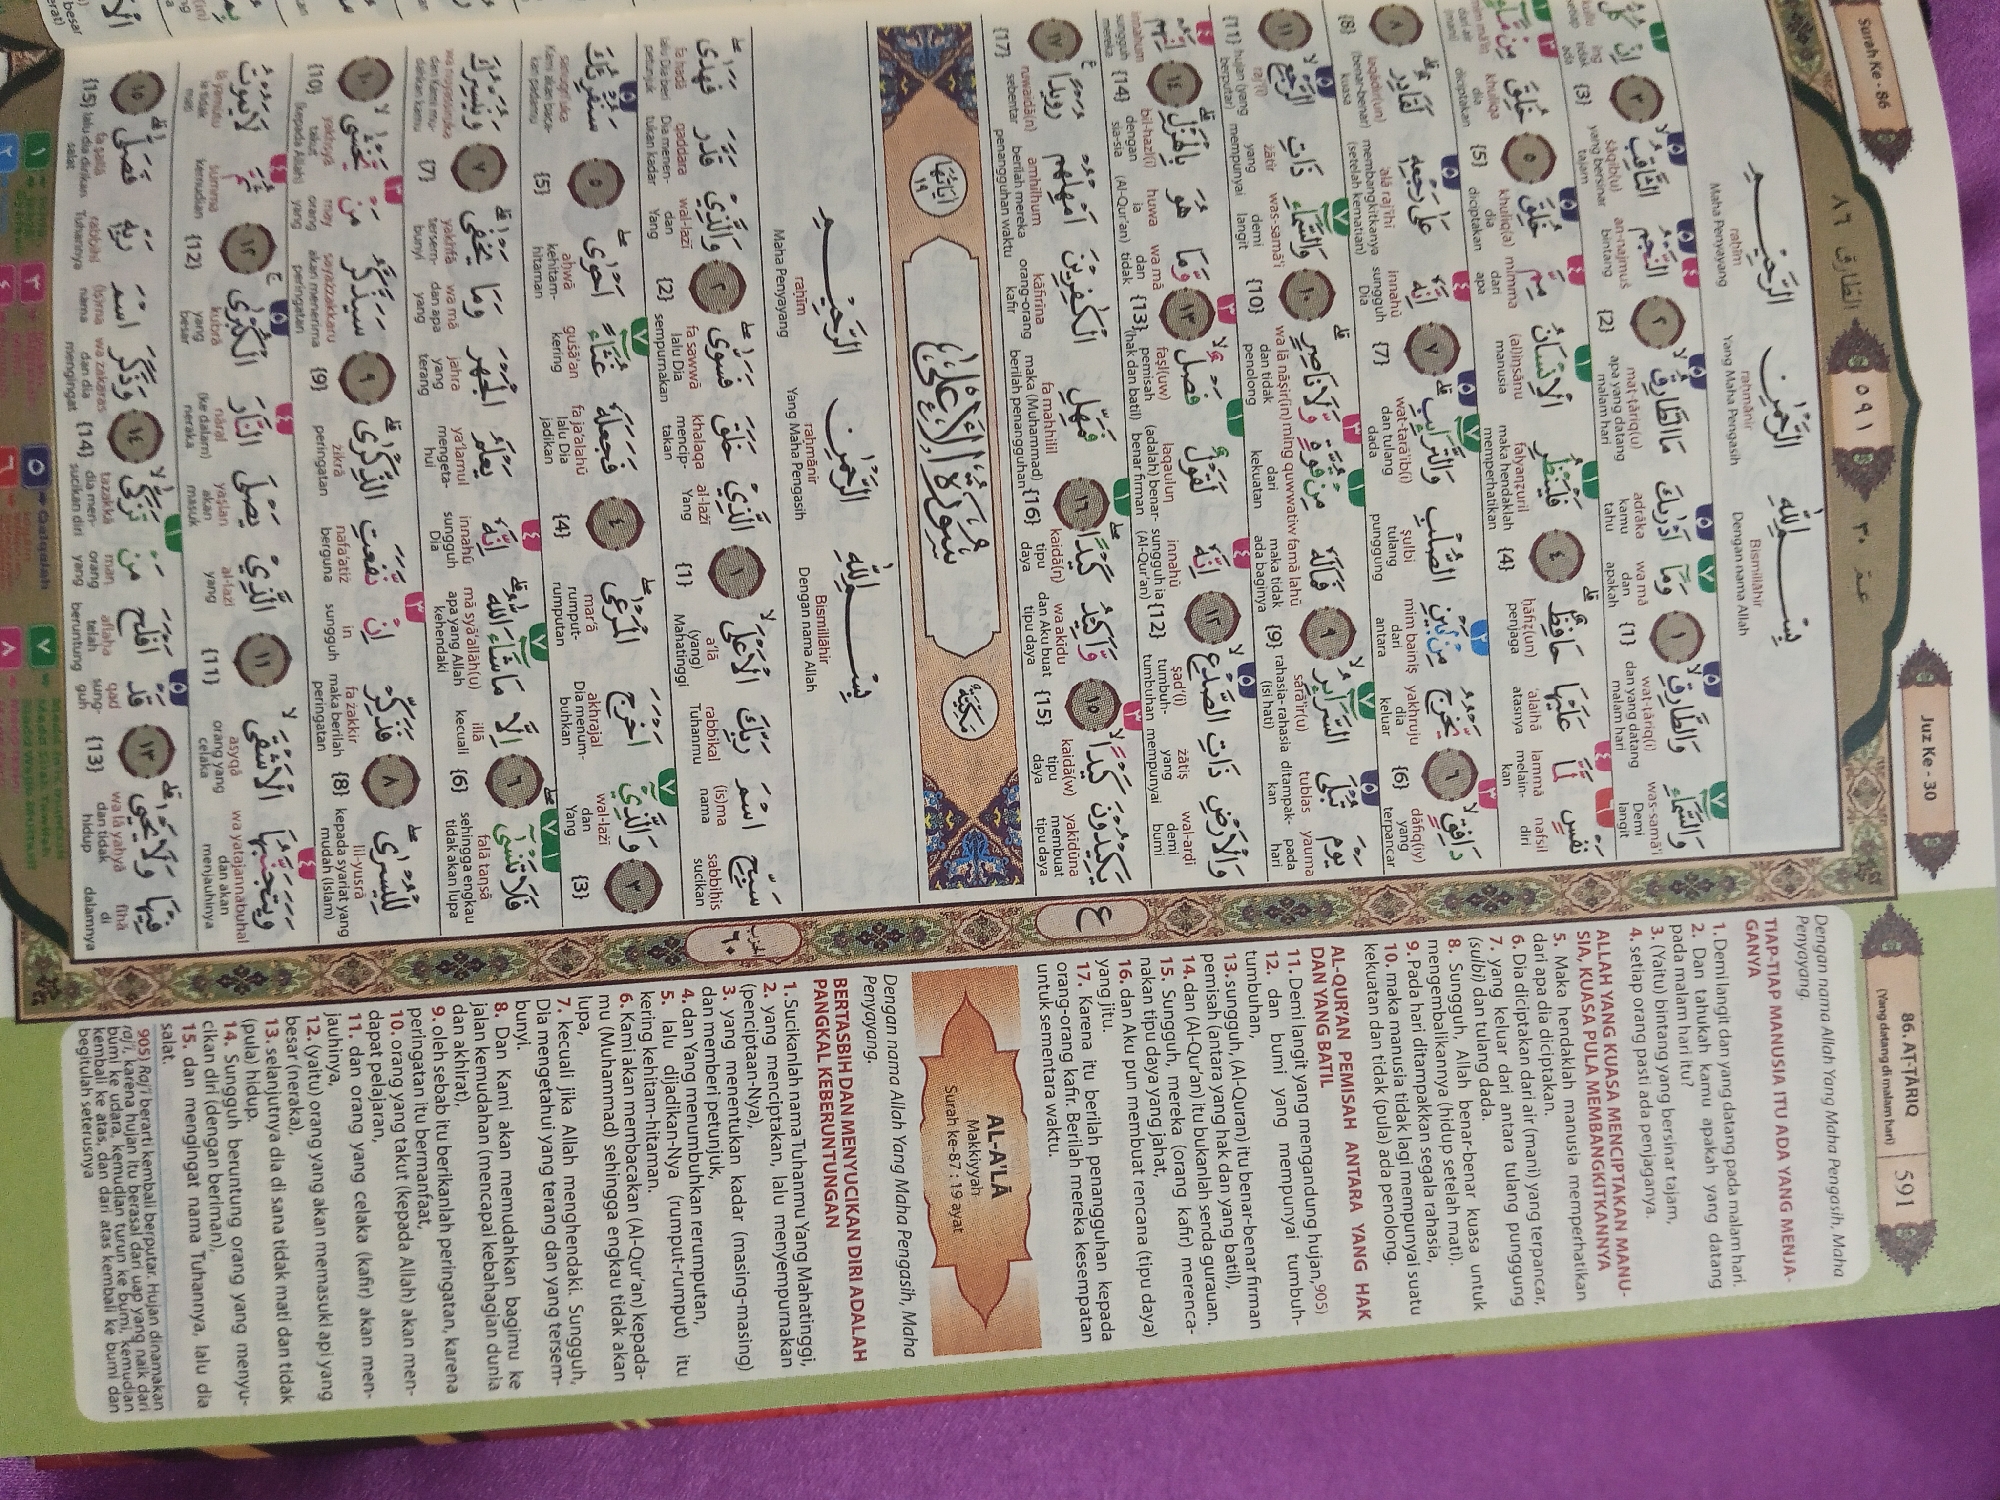 Surah Ke - 86
Juz Ke - 30
86. AṬ-ṬĀRIQ
(Yang datang di malam hari)
591
الطارق ٨٦
٥٩١
عم ٣٠
بِسْمِ اللّٰهِ الرَّحْمٰنِ الرَّحِيْمِ
Bismillāhir rahmānir rahīm
Dengan nama Allah Yang Maha Pengasih Maha Penyayang
وَالسَّمَاۤءِ وَالطَّارِقِۙ ١ وَمَآ اَدْرٰىكَ مَا الطَّارِقُۙ ٢ النَّجْمُ الثَّاقِبُۙ ٣ اِنْ كُلُّ
was-samā'i wat-tāriq(i) {1} wa mā adrāka mat-tāriq(u) {2} an-najmuś śāqib(u) {3}
Demi langit dan yang datang malam hari dan apakah kamu tahu apa yang datang malam hari bintang yang bersinar tajam
نَفْسٍ لَّمَّا عَلَيْهَا حَافِظٌۗ ٤ فَلْيَنْظُرِ الْاِنْسَانُ مِمَّ خُلِقَ ٥ خُلِقَ مِنْ مَّاۤءٍ
nafsil lammā 'alaihā hāfiẓ(un) {4} falyanẓuril (al)insānu mimma khuliq(a) {5} khuliqa
diri melainkan atasnya penjaga maka hendaklah memperhatikan manusia dari apa dia diciptakan dia diciptakan
دَافِقٍۙ ٦ يَّخْرُجُ مِنْۢ بَيْنِ الصُّلْبِ وَالتَّرَاۤىِٕبِۗ ٧ اِنَّهٗ عَلٰى رَجْعِهٖ لَقَادِرٌۗ ٨
dāfiq(iy) {6} yakhruju mim bainiṣ ṣulbi wat-tarā'ib(i) {7} innahū 'alā raj'ihī laqādir(un) {8}
yang terpancar dia keluar dari antara tulang punggung dan tulang dada sungguh Dia membangkitkanya (setelah kematian) (benar-benar) kuasa
يَوْمَ تُبْلَى السَّرَاۤىِٕرُۙ ٩ فَمَا لَهٗ مِنْ قُوَّةٍ وَّلَا نَاصِرٍۗ ١٠ وَالسَّمَاۤءِ ذَاتِ الرَّجْعِۙ ١١
yauma tublas sarā'ir(u) {9} famā lahū ming quwwatiw wa lā nāṣir(in) {10} was-samā'i żātir raj'(i) {11}
pada hari ditampakkan rahasia-rahasia (isi hati) maka tidak ada baginya dari kekuatan dan tidak penolong demi langit yang mempunyai hujan (yang berputar)
وَالْاَرْضِ ذَاتِ الصَّدْعِۙ ١٢ اِنَّهٗ لَقَوْلٌ فَصْلٌۙ ١٣ وَّمَا هُوَ بِالْهَزْلِۗ ١٤ اِنَّهُمْ
wal-arḍi żātiṣ ṣad'(i) {12} innahū laqaulun faṣl(uw) {13} wa mā huwa bil-hazl(i) {14} innahum
demi bumi yang mempunyai tumbuh-tumbuhan sungguh ia (Al-Qur'an) (adalah) benar-benar firman pemisah (hak dan batil) dan tidak ia (Al-Qur'an) dengan sia-sia sungguh mereka
يَكِيْدُوْنَ كَيْدًاۙ ١٥ وَّاَكِيْدُ كَيْدًاۖ ١٦ فَمَهِّلِ الْكٰفِرِيْنَ اَمْهِلْهُمْ رُوَيْدًا ١٧
yakīdūna kaidā(w) {15} wa akīdu kaidā(n) {16} fa mahhilil kāfirīna amhilhum ruwaidā(n) {17}
membuat tipu daya tipu daya dan Aku buat tipu daya tipu daya maka (Muhammad) berilah penangguhan orang-orang kafir berilah mereka penangguhan waktu sebentar
ع
مَكِّيَّة
سُوْرَةُ الْاَعْلٰى
اٰيَاتُهَا ١٩
بِسْمِ اللّٰهِ الرَّحْمٰنِ الرَّحِيْمِ
Bismillāhir rahmānir rahīm
Dengan nama Allah Yang Maha Pengasih Maha Penyayang
الحزب ٦٠
سَبِّحِ اسْمَ رَبِّكَ الْاَعْلَىۙ ١ الَّذِيْ خَلَقَ فَسَوّٰىۖ ٢ وَالَّذِيْ قَدَّرَ فَهَدٰىۖ
sabbihis (is)ma rabbikal a'lā {1} al-lażī khalaqa fa sawwā {2} wal-lażī qaddara fa hadā
sucikan nama Tuhanmu (yang) Mahatinggi Yang menciptakan lalu Dia sempurnakan dan Yang Dia menentukan kadar lalu Dia beri petunjuk
٣ وَالَّذِيْٓ اَخْرَجَ الْمَرْعٰىۖ ٤ فَجَعَلَهٗ غُثَاۤءً اَحْوٰىۖ ٥ سَنُقْرِئُكَ
{3} wal-lażī akhrajal mar'ā {4} fa ja'alahū guśā'an ahwā {5} sanuqri'uka
dan Yang Dia menumbuhkan rumput-rumputan lalu Dia jadikan kering kehitam-hitaman Kami akan bacakan padamu
فَلَا تَنْسٰىٓۖ ٦ اِلَّا مَا شَاۤءَ اللّٰهُۗ اِنَّهٗ يَعْلَمُ الْجَهْرَ وَمَا يَخْفٰىۗ ٧ وَنُيَسِّرُكَ
falā tansā {6} illā mā syā'allāh(u) innahū ya'lamul jahra wa mā yakhfā {7} wa nuyassiruka
sehingga engkau tidak akan lupa kecuali apa yang Allah kehendaki sungguh Dia mengetahui yang terang dan apa yang tersembunyi dan Kami mudahkan kamu
لِلْيُسْرٰىۖ ٨ فَذَكِّرْ اِنْ نَّفَعَتِ الذِّكْرٰىۗ ٩ سَيَذَّكَّرُ مَنْ يَّخْشٰىۙ ١٠
lil-yusrā {8} fa żakkir in nafa'atiż żikrā {9} sayażżakkaru may yakhsyā {10}
kepada syariat yang mudah (Islam) maka berilah peringatan sungguh berguna peringatan akan menerima peringatan orang yang takut (kepada Allah)
وَيَتَجَنَّبُهَا الْاَشْقَىۙ ١١ الَّذِيْ يَصْلَى النَّارَ الْكُبْرٰىۚ ١٢ ثُمَّ لَا يَمُوْتُ
wa yatajannabuhal asyqā {11} al-lażī yaṣlan nāral kubrā {12} śumma lā yamūtu
dan akan menjauhinya orang yang celaka yang akan masuk (ke dalam) neraka yang besar kemudian ia tidak mati
فِيْهَا وَلَا يَحْيٰىۗ ١٣ قَدْ اَفْلَحَ مَنْ تَزَكّٰىۙ ١٤ وَذَكَرَ اسْمَ رَبِّهٖ فَصَلّٰىۗ ١٥
fīhā wa lā yahyā {13} qad aflaha man tazakkā {14} wa żakaras (is)ma rabbihī fa ṣallā {15}
di dalamnya dan tidak hidup sungguh telah beruntung orang dia mensucikan diri dan dia mengingat nama Tuhannya lalu dia dirikan salat
Dengan nama Allah Yang Maha Pengasih, Maha
Penyayang.
TIAP-TIAP MANUSIA ITU ADA YANG MENJA-
GANYA
1. Demi langit dan yang datang pada malam hari.
2. Dan tahukah kamu apakah yang datang
pada malam hari itu?
3. (Yaitu) bintang yang bersinar tajam,
4. setiap orang pasti ada penjaganya.
ALLAH YANG KUASA MENCIPTAKAN MANU-
SIA, KUASA PULA MEMBANGKITKANNYA
5. Maka hendaklah manusia memperhatikan
dari apa dia diciptakan.
6. Dia diciptakan dari air (mani) yang terpancar,
7. yang keluar dari antara tulang punggung
(sulbi) dan tulang dada.
8. Sungguh, Allah benar-benar kuasa untuk
mengembalikannya (hidup setelah mati).
9. Pada hari ditampakkan segala rahasia,
10. maka manusia tidak lagi mempunyai suatu
kekuatan dan tidak (pula) ada penolong.
AL-QUR'AN PEMISAH ANTARA YANG HAK
DAN YANG BATIL
11. Demi langit yang mengandung hujan,905)
12. dan bumi yang mempunyai tumbuh-
tumbuhan,
13. sungguh, (Al-Quran) itu benar-benar firman
pemisah (antara yang hak dan yang batil),
14. dan (Al-Qur'an) itu bukanlah senda gurauan.
15. Sungguh, mereka (orang kafir) merenca-
nakan tipu daya yang jahat,
16. dan Aku pun membuat rencana (tipu daya)
yang jitu.
17. Karena itu berilah penangguhan kepada
orang-orang kafir. Berilah mereka kesempatan
untuk sementara waktu.
AL-A'LĀ
Makiyyah
Surah ke-87 : 19 ayat
Dengan nama Allah Yang Maha Pengasih, Maha
Penyayang.
BERTASBIH DAN MENYUCIKAN DIRI ADALAH
PANGKAL KEBERUNTUNGAN
1. Sucikanlah nama Tuhanmu Yang Mahatinggi,
2. yang menciptakan, lalu menyempurnakan
(penciptaan-Nya),
3. yang menentukan kadar (masing-masing)
dan memberi petunjuk,
4. dan Yang menumbuhkan rerumputan,
5. lalu dijadikan-Nya (rumput-rumput) itu
kering kehitam-hitaman.
6. Kami akan membacakan (Al-Qur'an) kepada-
mu (Muhammad) sehingga engkau tidak akan
lupa,
7. kecuali jika Allah menghendaki. Sungguh,
Dia mengetahui yang terang dan yang tersem-
bunyi.
8. Dan Kami akan memudahkan bagimu ke
jalan kemudahan (mencapai kebahagian dunia
dan akhirat),
9. oleh sebab itu berikanlah peringatan, karena
peringatan itu bermanfaat,
10. orang yang takut (kepada Allah) akan men-
dapat pelajaran,
11. dan orang yang celaka (kafir) akan men-
jauhinya,
12. (yaitu) orang yang akan memasuki api yang
besar (neraka),
13. selanjutnya dia di sana tidak mati dan tidak
(pula) hidup.
14. Sungguh beruntung orang yang menyu-
cikan diri (dengan beriman),
15. dan mengingat nama Tuhannya, lalu dia
salat.
905) Raj'i berarti kembali berputar. Hujan dinamakan
raj'i, karena hujan itu berasal dari uap yang naik dari
bumi ke udara, kemudian turun ke bumi, kemudian
kembali ke atas, dan dari atas kembali ke bumi dan
begitulah seterusnya